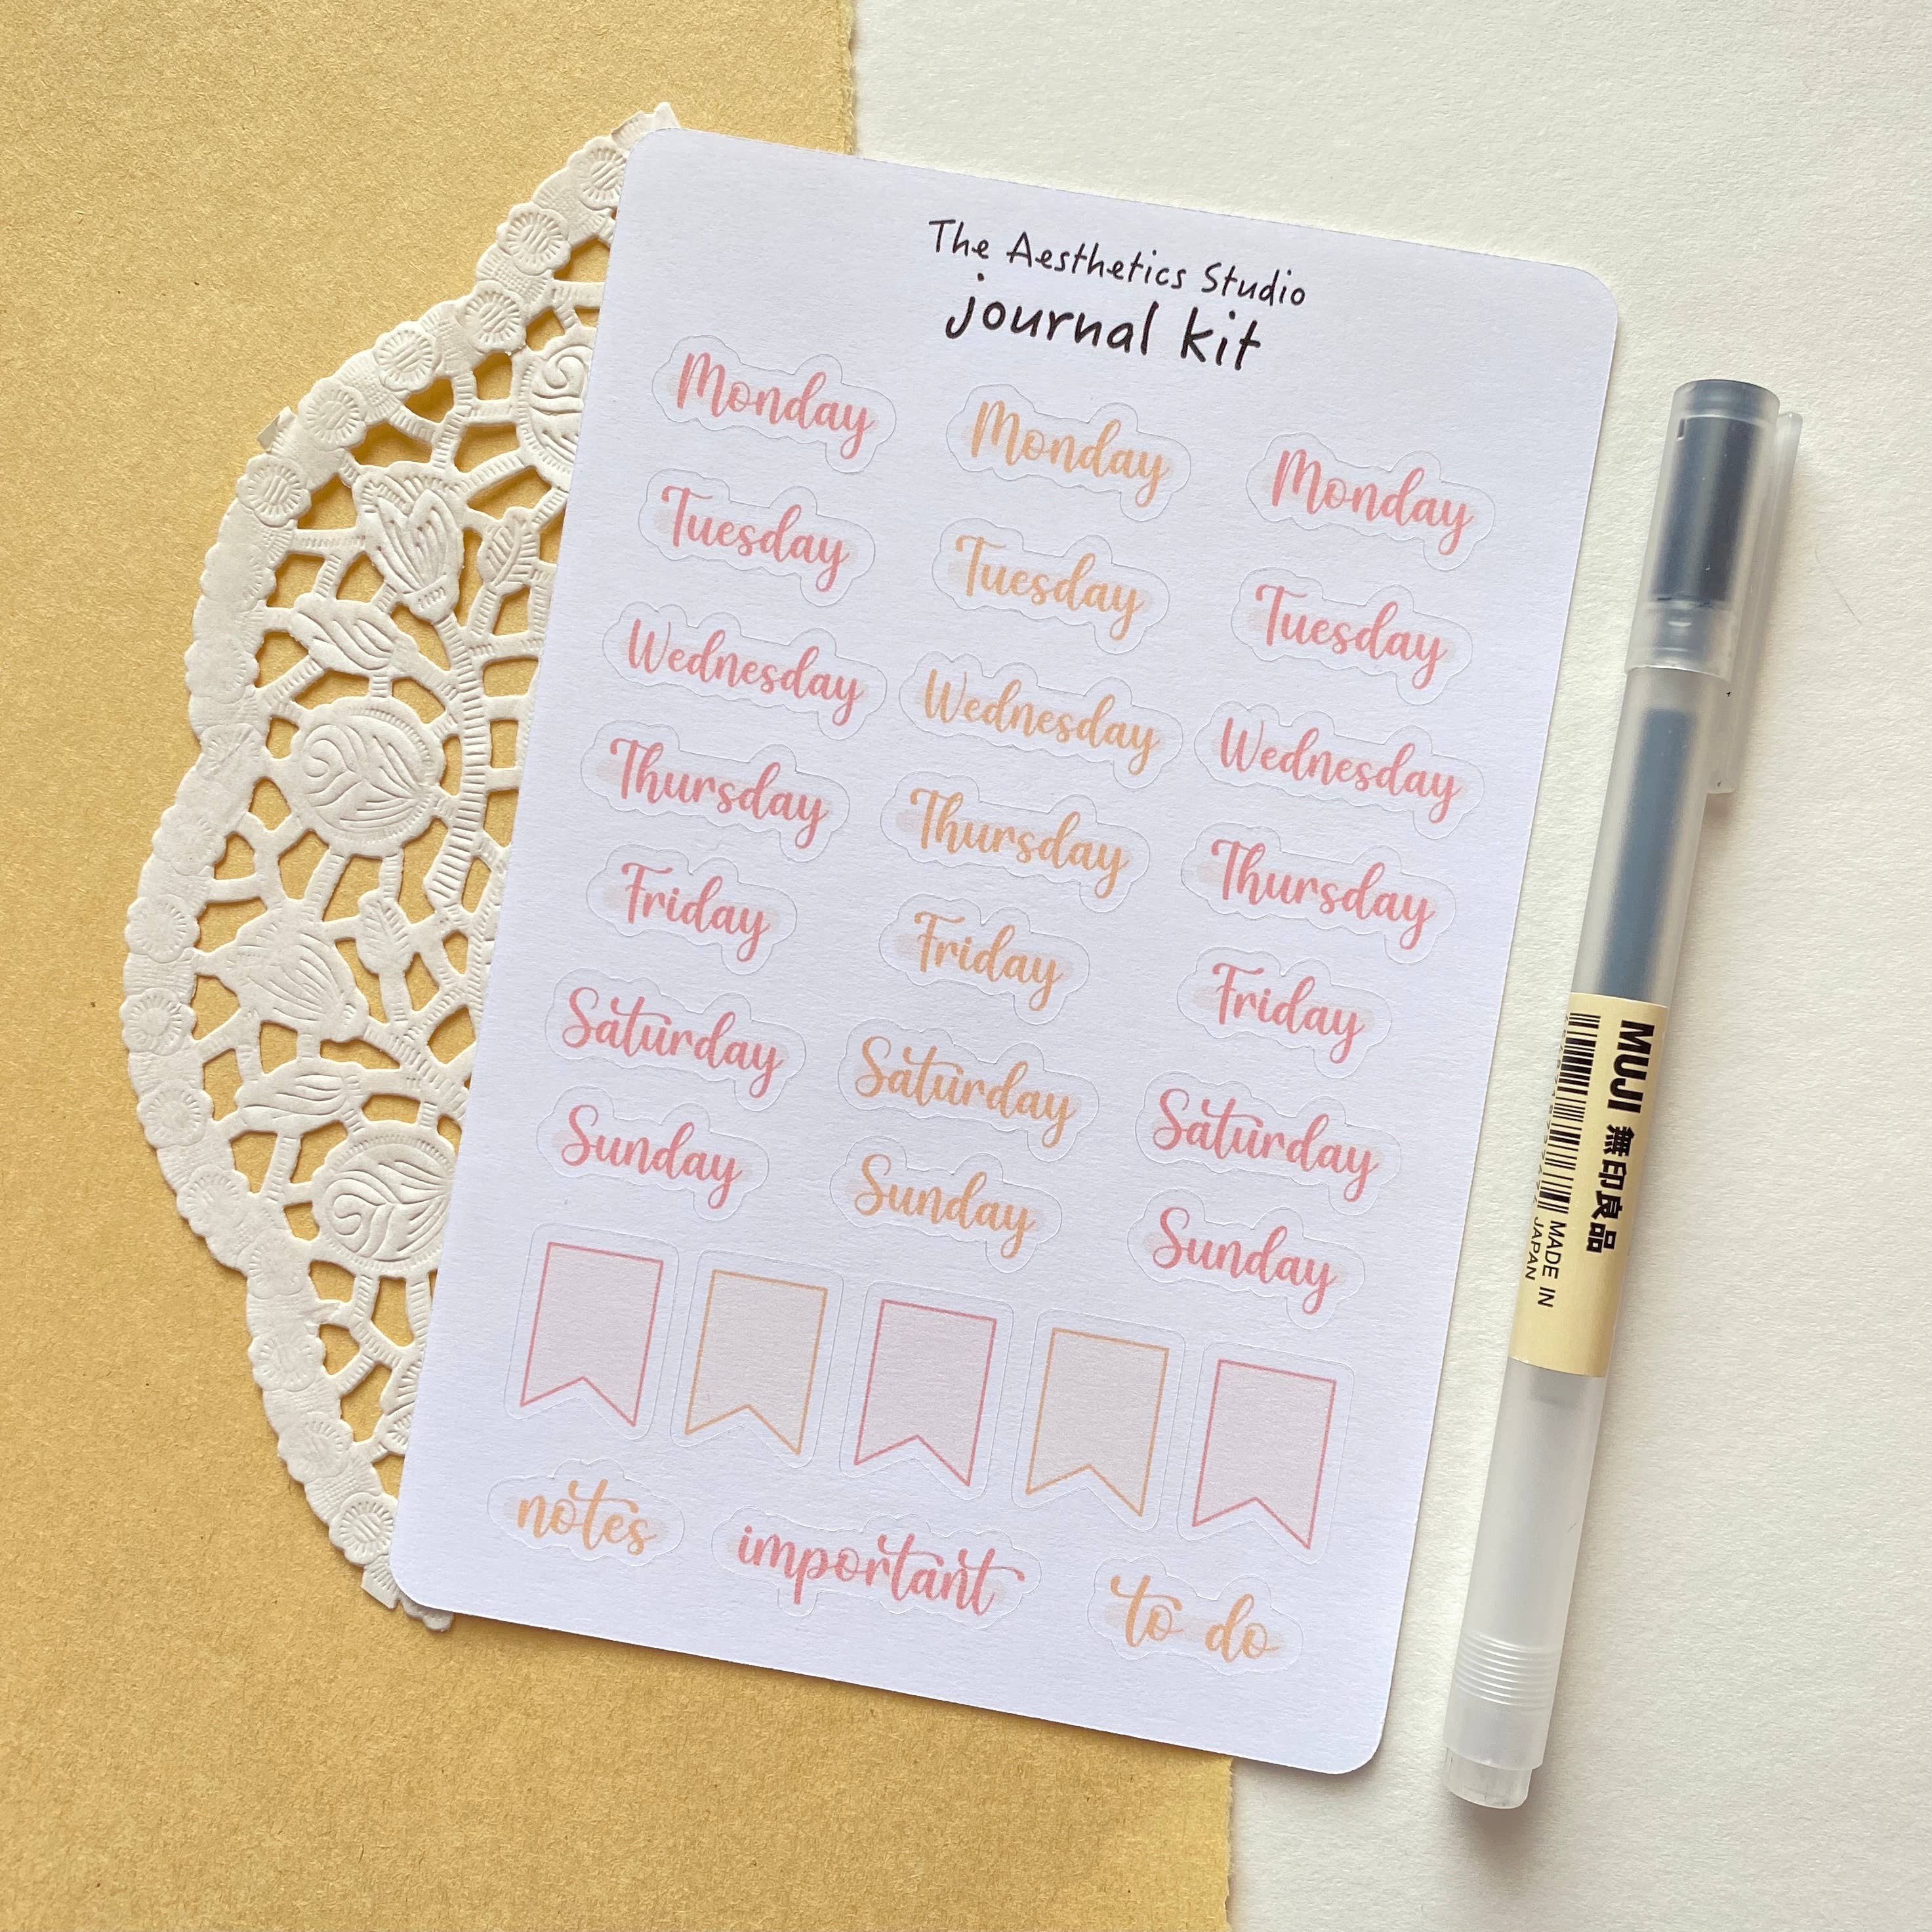 The Aesthetics Studio
journal kit
Monday Monday Monday
Tuesday Tuesday Tuesday
Wednesday Wednesday Wednesday
Thursday Thursday Thursday
Friday Friday Friday
Saturday Saturday Saturday
Sunday Sunday Sunday
notes important to do
MUJI 無印良品
MADE IN
JAPAN